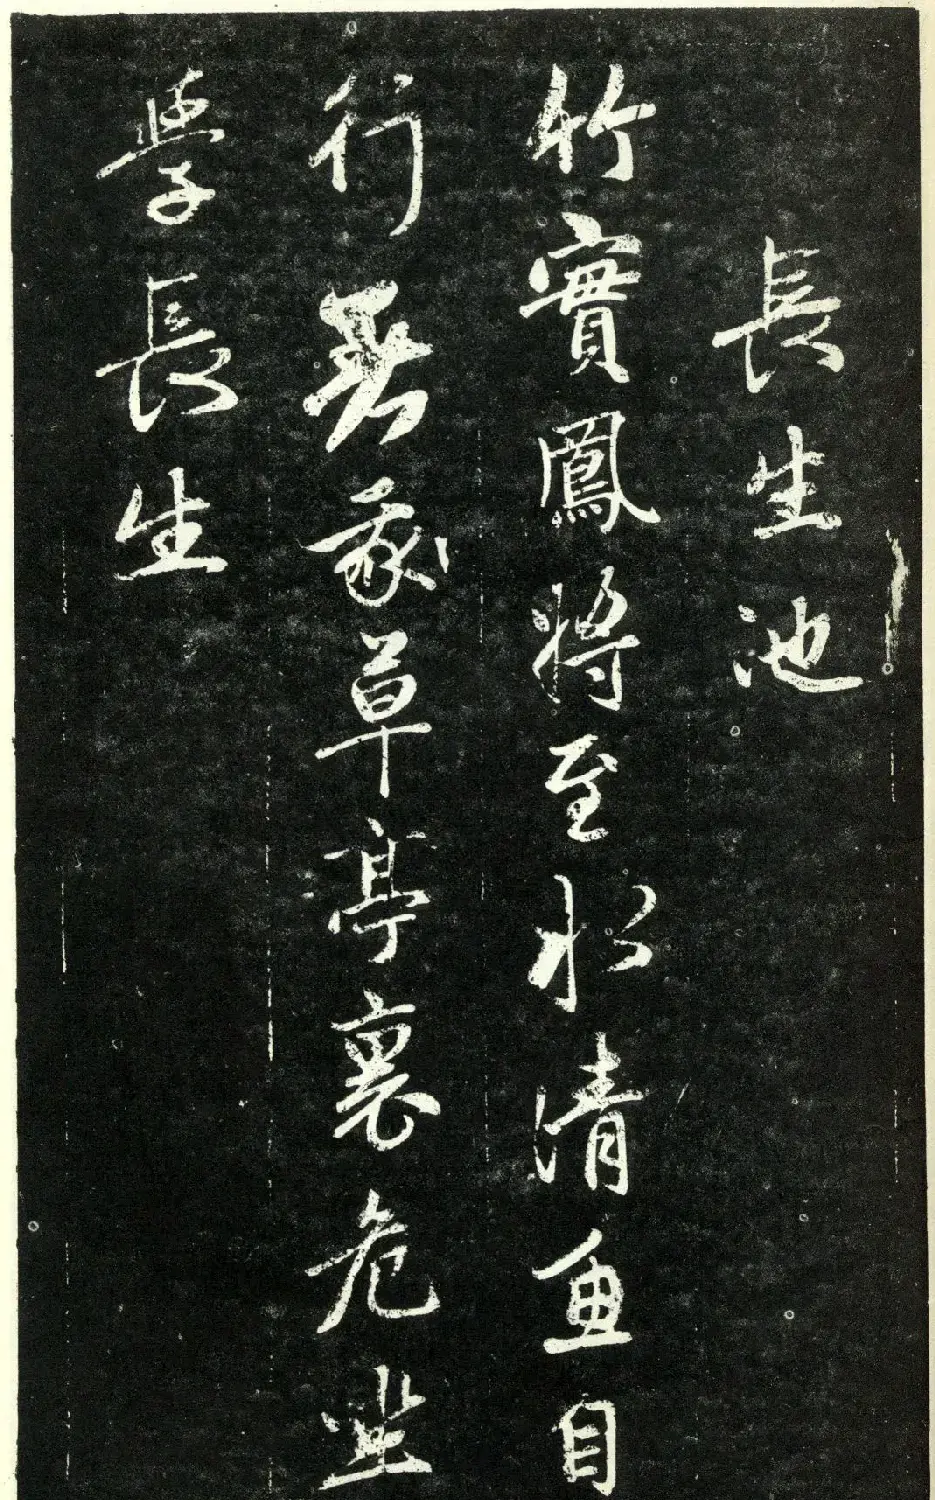 長生池
竹實鳳將至水清魚自
行草亭裏危坐
學長生